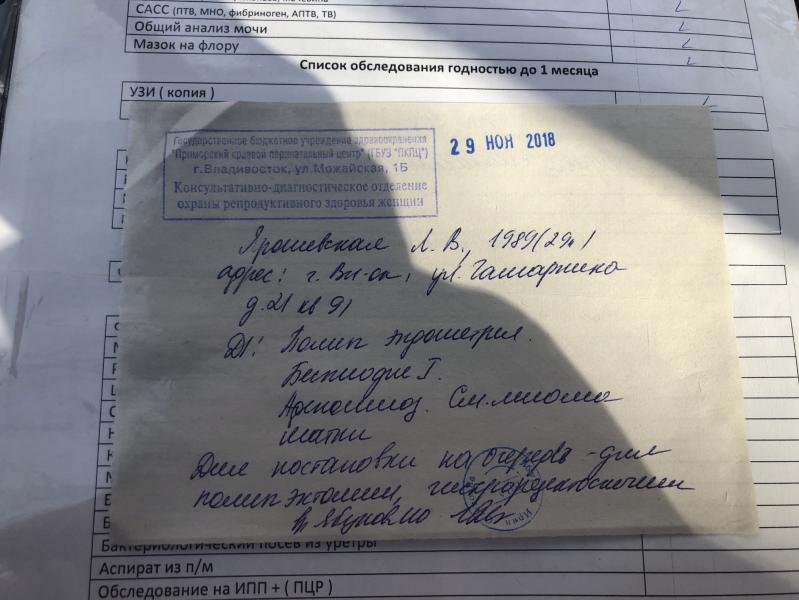 САСС (ПТВ, МНО, фибриноген, АПТВ, ТВ)
Общий анализ мочи
Мазок на флору
Список обследования годностью до 1 месяца
УЗИ ( копия )
Государственное бюджетное учреждение здравоохранения
"Приморский краевой перинатальный центр" (ГБУЗ "ПКПЦ")
г.Владивосток, ул.Можайская, 1Б
Консультативно-диагностическое отделение
охраны репродуктивного здоровья женщин
29 НОЯ 2018
Ярошевская Л. В., 1989 (29л)
адрес: г. Вл-ок, ул.
д.21 кв 91
Ds: Полип эндометрия.
Бесплодие I.
Аденомиоз. См. миома
матки
Для постановки на очередь - для
полипэктомии,
Бактериологический посев из уретры
Аспират из п/м
Обследование на ИПП + ( ПЦР )